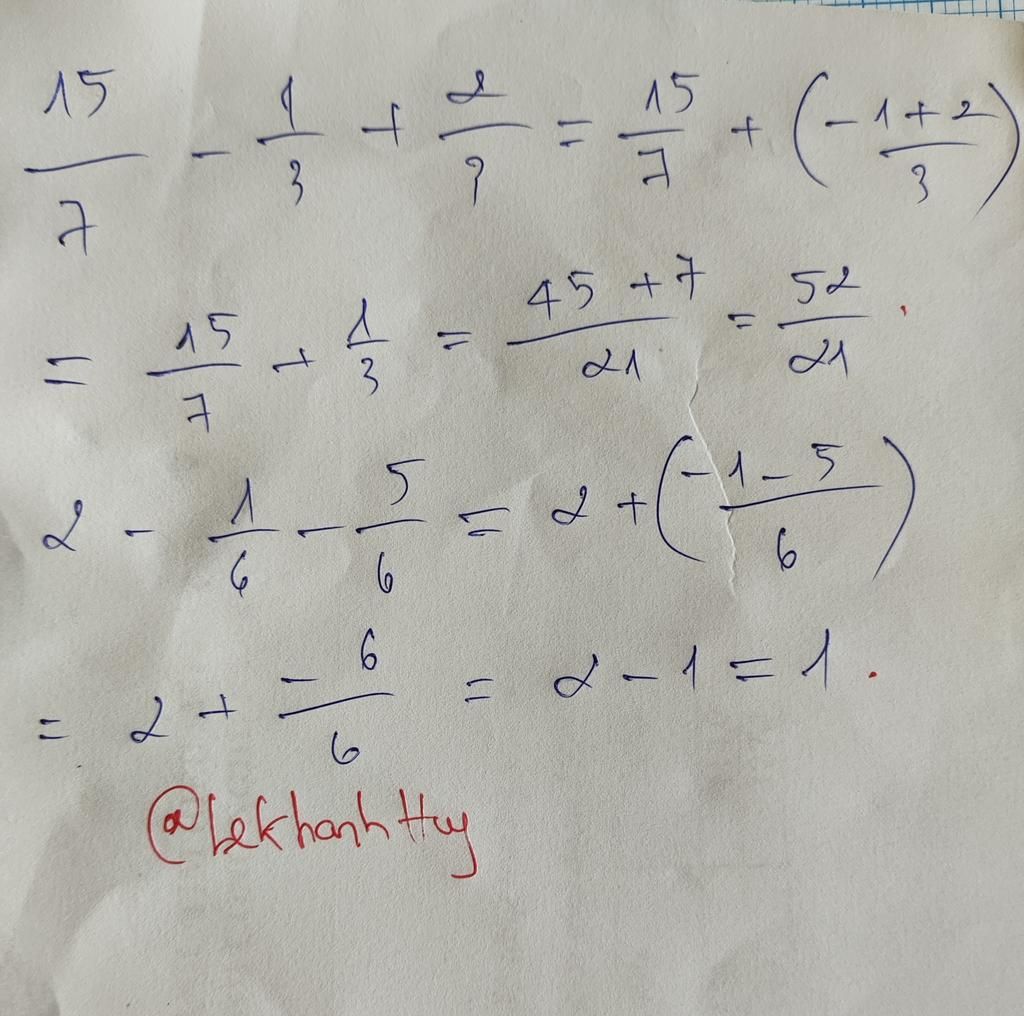 15/7 - 1/3 + 2/3 = 15/7 + (-1+2/3)
= 15/7 + 1/3 = 45+7/21 = 52/21.
2 - 1/6 - 5/6 = 2 + (-1-5/6)
= 2 + -6/6 = 2 - 1 = 1.
@LekhanhHuy